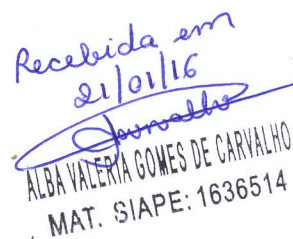 Recebida em
21/01/16
Carvalho
ALBA VALERIA GOMES DE CARVALHO
MAT. SIAPE: 1636514